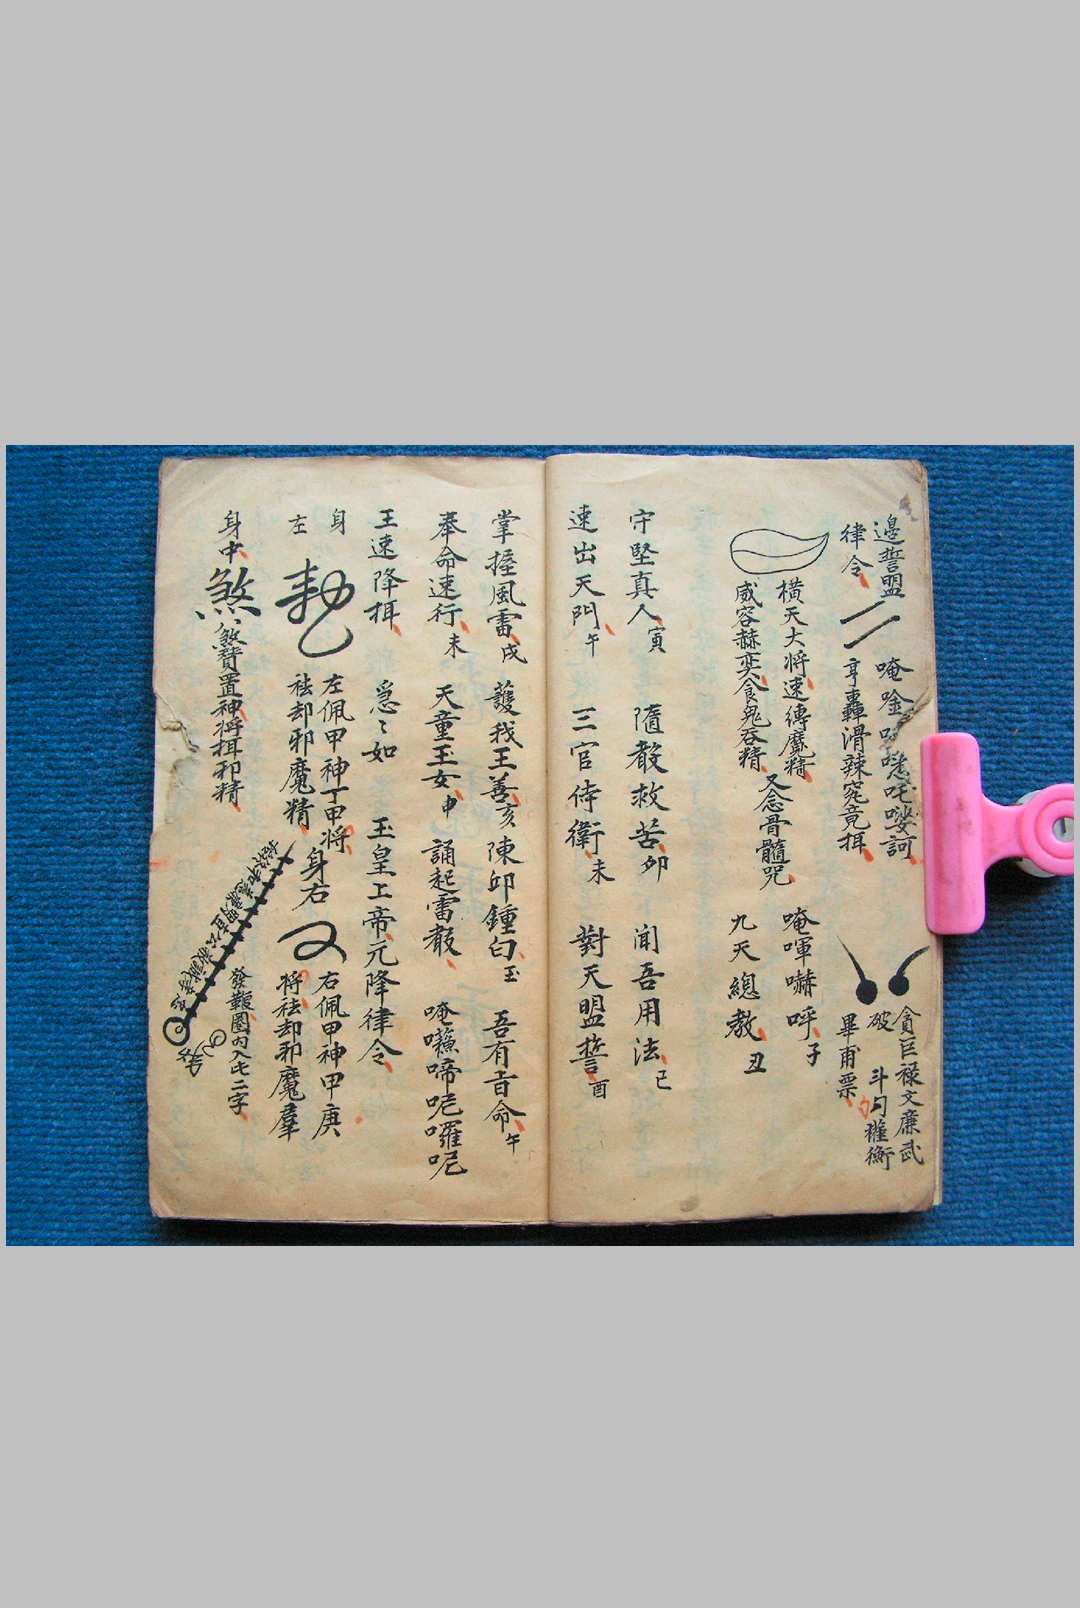 邊誓盟
律令
唵
悉吒娑訶
亨轟滑辣窕竟揖
貪巨祿文廉武
破
斗勺權衡
畢甫票
橫天大將速縛魔精
威容赫奕食鬼吞精
又念骨髓咒
唵啈嚇呼子
九天總教丑
守堅真人寅
隨教救苦卯
聞吾用法巳
速出天門午
三官侍衛未
對天盟誓酉
掌握風雷戌
護我王善亥
陳邱鍾白玉
吾有旨命午
奉命速行未
天童玉女申
誦起雷教
唵㘓啼呢囉呢
王速降揖
急〻如
玉皇上帝元降律令
身
左
左佩甲神丁甲將
袪却邪魔精
身右
右佩甲神甲庚
將袪却邪魔羣
身中
煞
煞贊置神將揖邪精
發報圈內入此二字